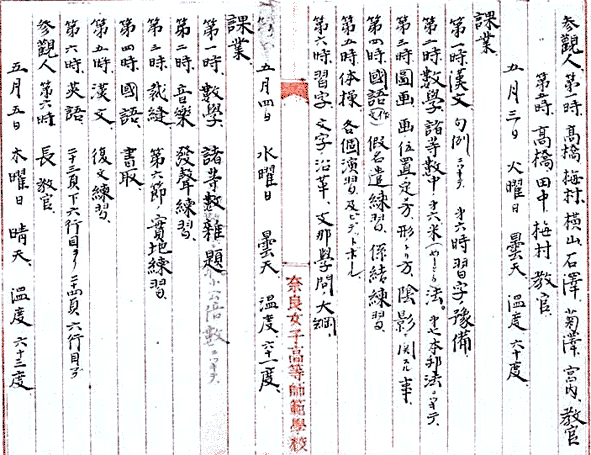 参觀人 第一時、高橋、梅村、横山、石澤、菊澤、宮内、教官
第五時、高橋、田中、梅村 教官
五月三日 火曜日 曇天 温度 六十度
課業
第一時、漢文 句例ニツキテ 第六時習字豫備
第二時、數學 諸等數中
第三時、圖画 画位置定メ方、形トリ方、陰影ニ関スル事
第四時、國語 假名遣練習、係結練習
第五時、体操 各個演習及
第六時、習字 文字沿革、支那學問ノ大綱
奈良女子高等師範學校
五月四日 水曜日 曇天 温度 六十一度
課業
第一時、數學 諸等數雜題
第二時、音樂 發聲練習
第三時、裁縫 第六節ノ實地練習
第四時、國語 書取
第五時、漢文 復文練習
第六時、英語 二十三頁下六行目ヨリ二十四頁六行目マデ
参觀人 第六時 長 教官
五月五日 木曜日 晴天 温度 六十三度